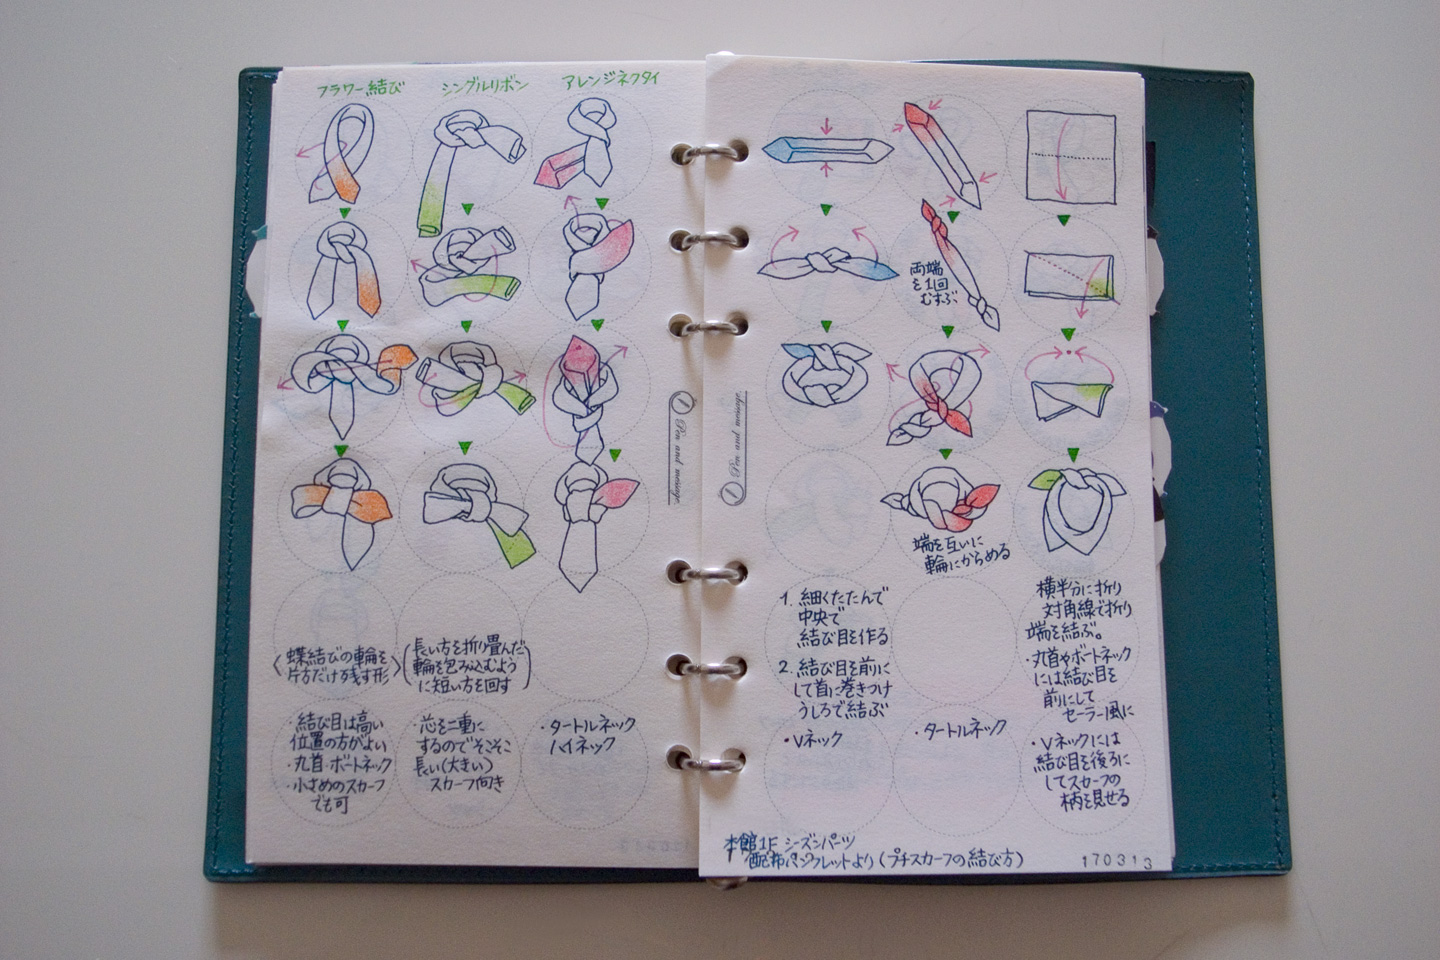 フラワー結び
シングルリボン
アレンジネクタイ
〈蝶結びの輪を
片方だけ残す形〉
(長い方を折り畳んだ
輪を包み込むよう
に短い方を回す)
・結び目は高い
位置の方がよい
・丸首・ボートネック
・小さめのスカーフ
でも可
・芯を二重に
するのでそこそこ
長い(大きい)
スカーフ向き
・タートルネック
ハイネック
Pen and message.
Pen and message.
両端
を1回
むすぶ
端を互いに
輪にからめる
1. 細くたたんで
中央で
結び目を作る
2. 結び目を前に
して首に巻きつけ
うしろで結ぶ
・Vネック
・タートルネック
横半分に折り
対角線で折り
端を結ぶ。
・丸首やボートネック
には結び目を
前にして
セーラー風に
・Vネックには
結び目を後ろに
してスカーフの
柄を見せる
本館1F シーズンパーツ
配布パンフレットより(プチスカーフの結び方)
170313